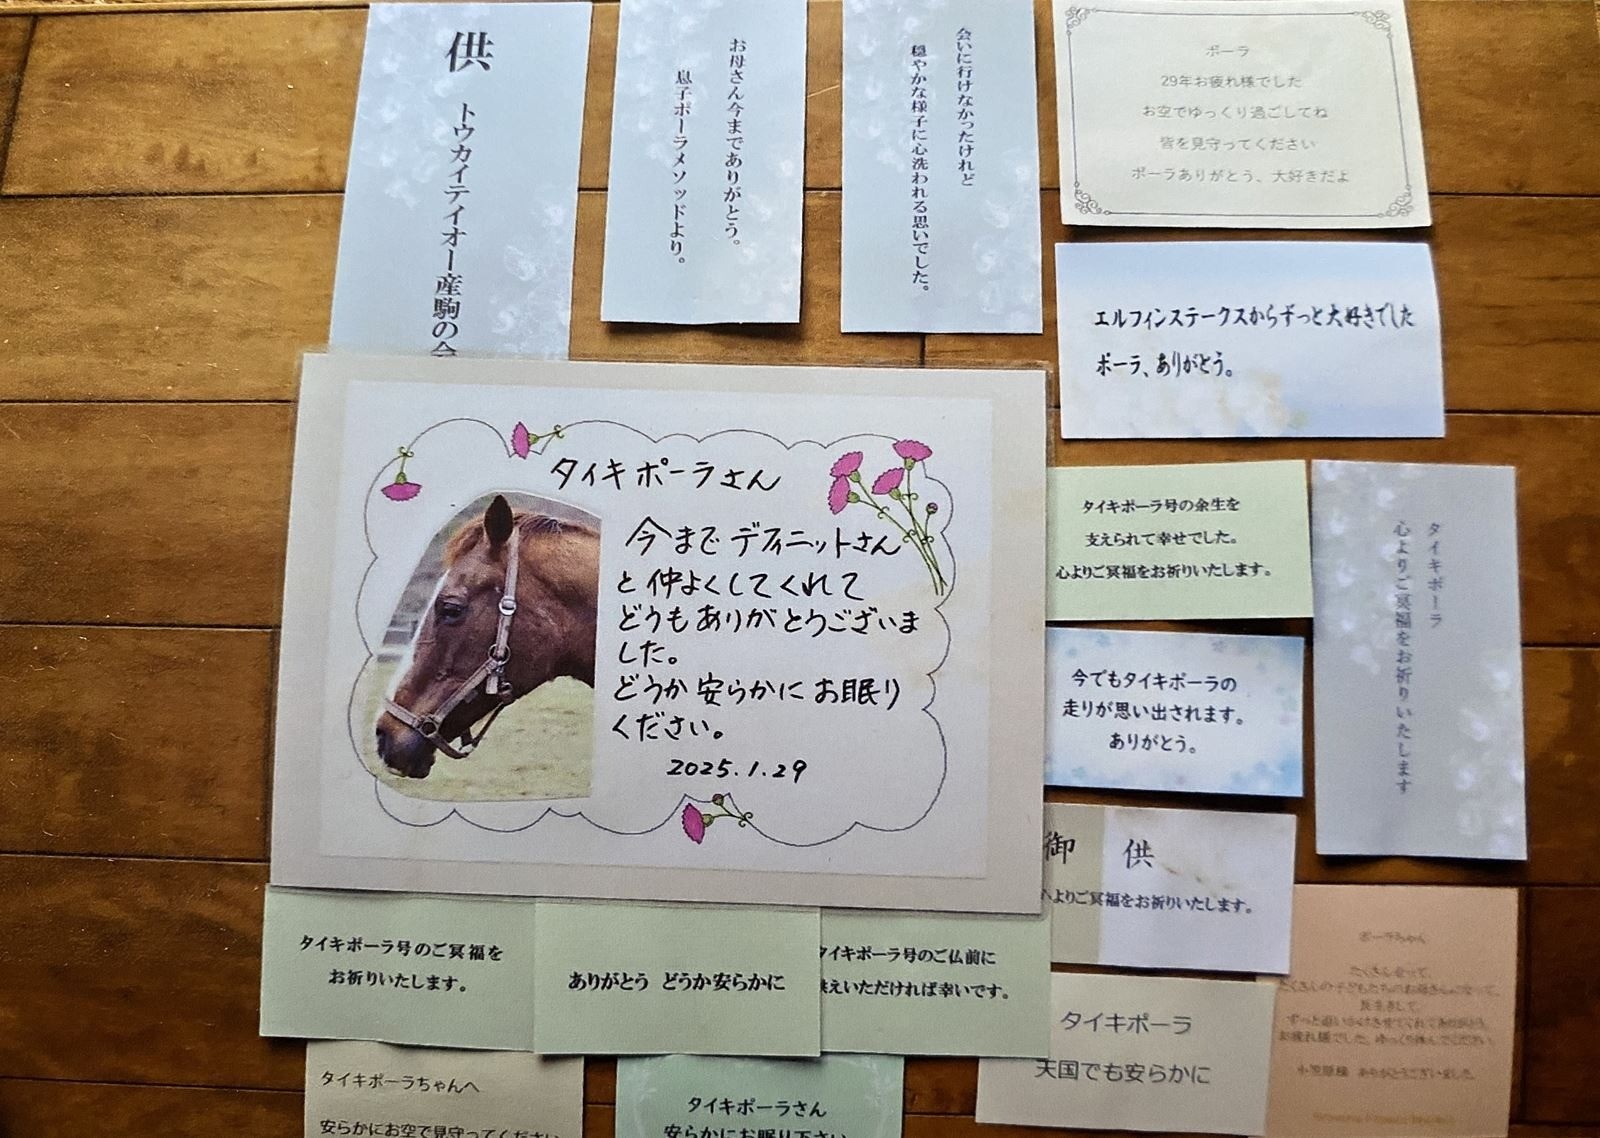 供
トウカイテイオー産駒の会
お母さん今までありがとう。
息子ポーラメソッドより。
会いに行けなかったけれど
穏やかな様子に心洗われる思いでした。
ポーラ
29年お疲れ様でした
お空でゆっくり過ごしてね
皆を見守ってください
ポーラありがとう、大好きだよ
エルフィンステークスからずっと大好きでした
ポーラ、ありがとう。
タイキポーラさん
今までデフィニットさん
と仲よくしてくれて
どうもありがとうございま
した。
どうか安らかにお眠り
ください。
2025.1.29
タイキポーラ号の余生を
支えられて幸せでした。
心よりご冥福をお祈りいたします。
タイキポーラ
心よりご冥福をお祈りいたします
今でもタイキポーラの
走りが思い出されます。
ありがとう。
御 供
よりご冥福をお祈りいたします。
タイキポーラ号のご冥福を
お祈りいたします。
ありがとう どうか安らかに
タイキポーラ号のご仏前に
供えいただければ幸いです。
タイキポーラ
天国でも安らかに
ポーラちゃん
たくさん走って、
たくさんの子どもたちのお母さんになって、
長生きして、
ずっと追いかけさせてくれてありがとう。
お疲れ様でした。ゆっくり休んでください。
ありがとうございました。
タイキポーラちゃんへ
安らかにお空で見守ってください
タイキポーラさん
安らかにお眠り下さい